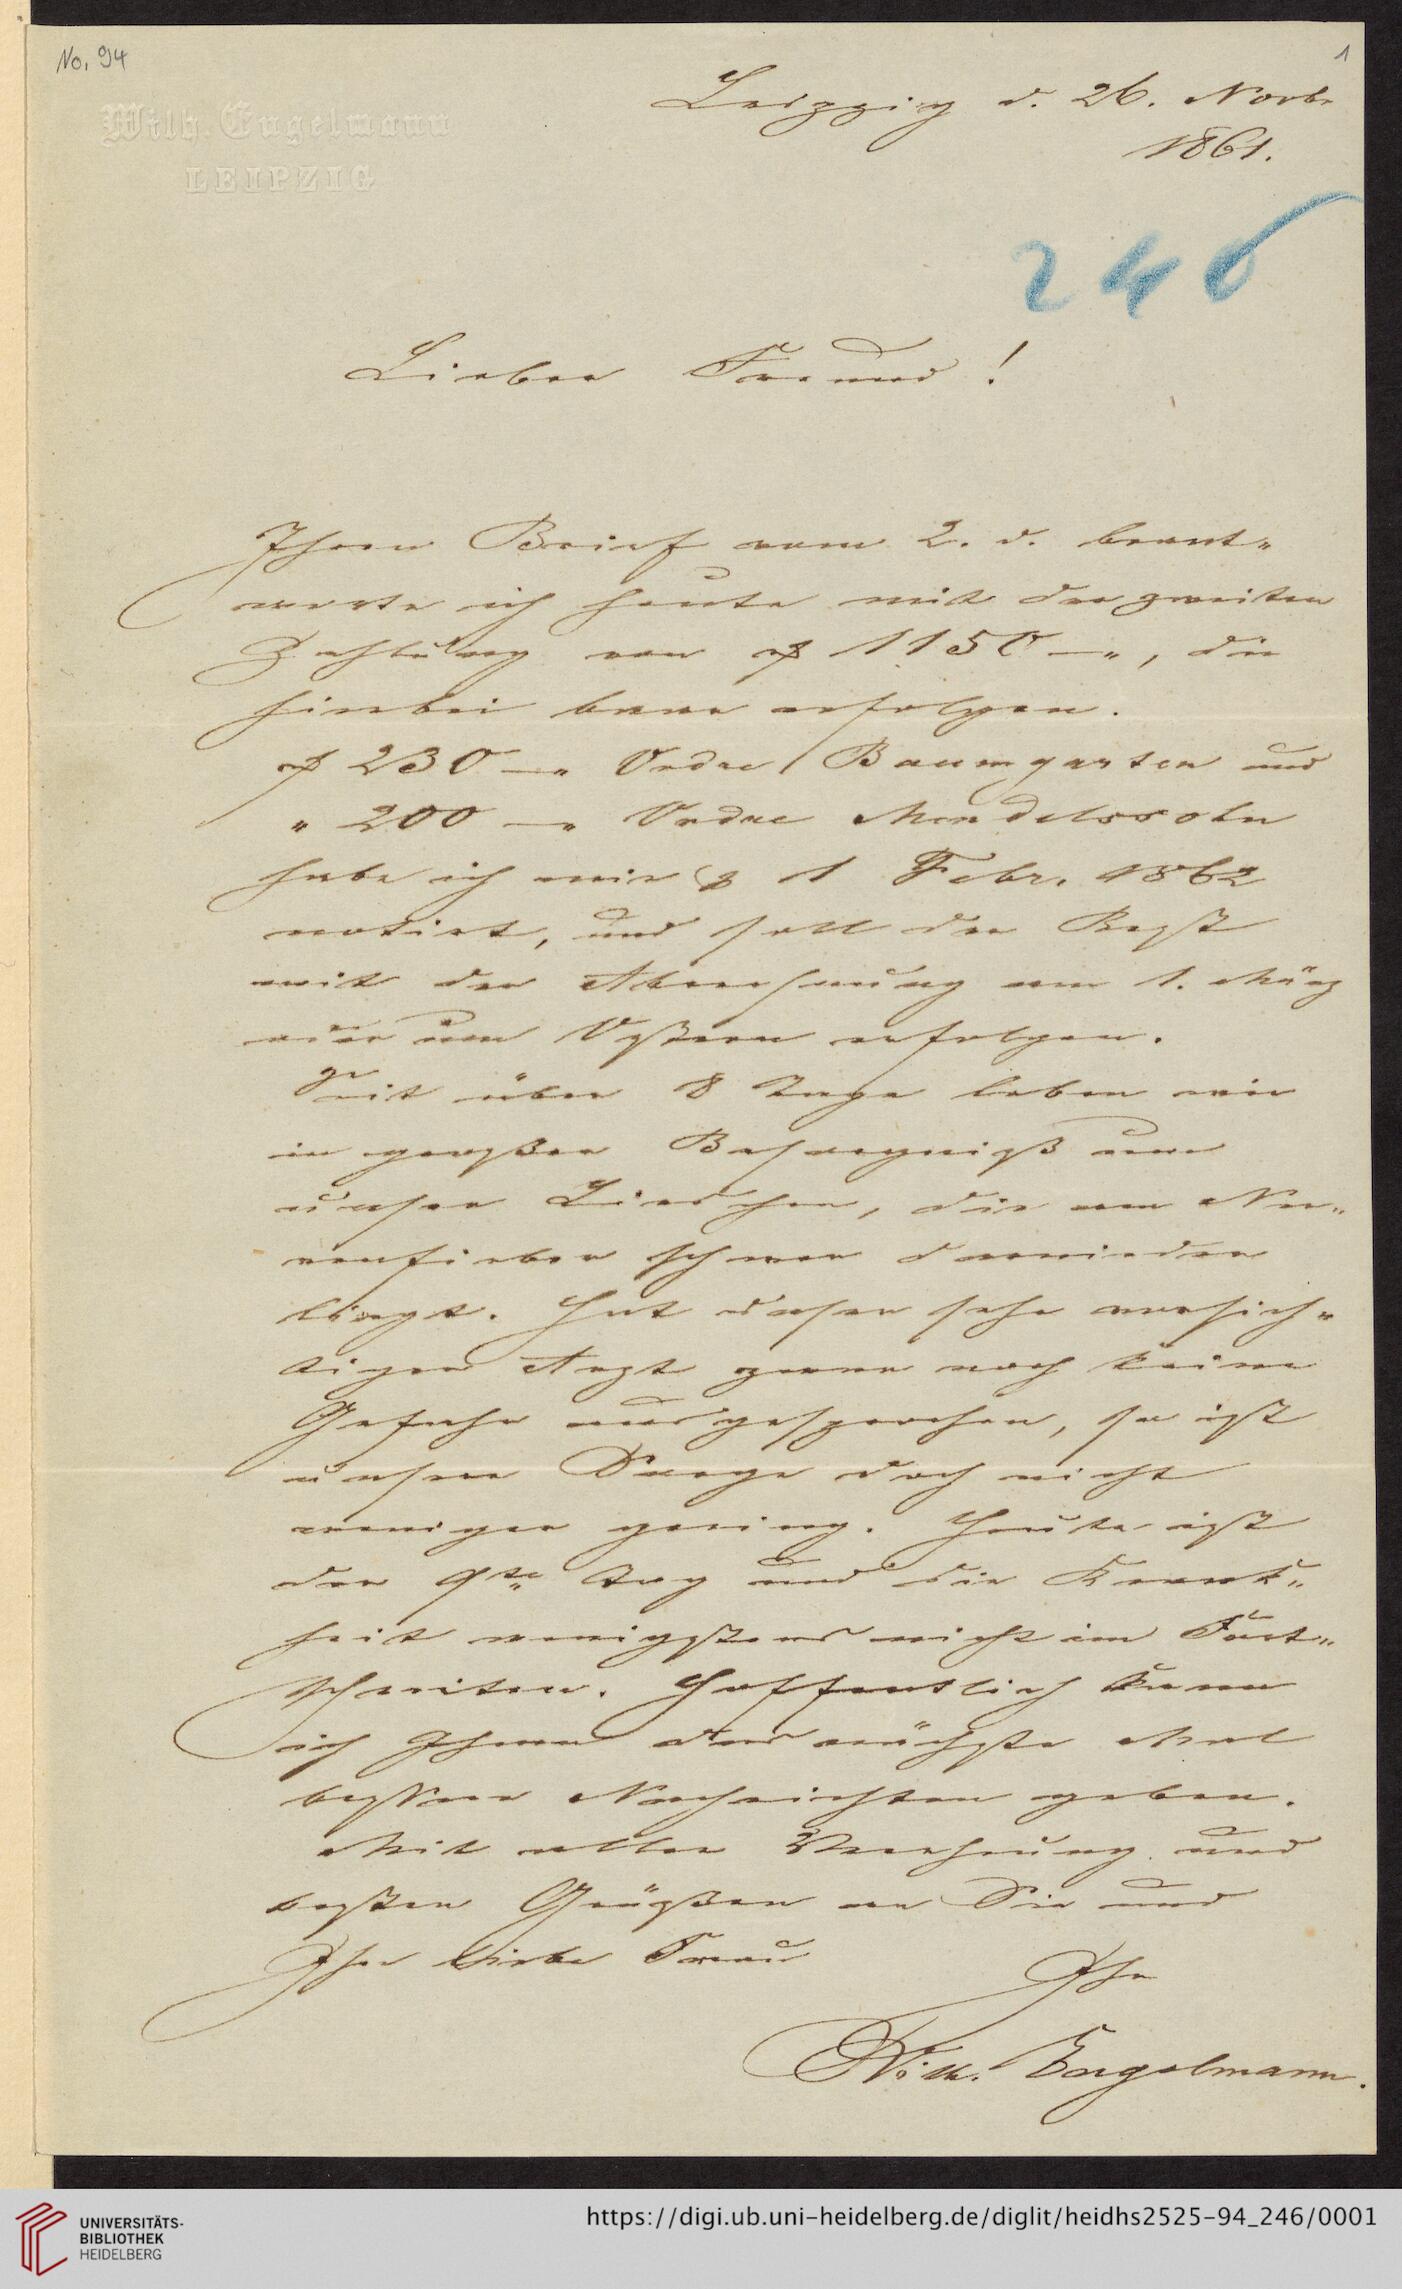 No. 94
1
Wilh. Engelmann
LEIPZIG
Leipzig d. 26. Novbr
1861.
246
Lieber Freund!
Ihren Brief vom 2. d. beant-
worte ich heute mit der zweiten
Zahlung von ₰ 1150 —„, die
hierbei baar erfolgen.
₰ 230 —„ Ordre Baumgarten und
„ 200 —„ Ordre Mendelssohn
habe ich mir p 1 Febr. 1862
notirt, und soll der Rest
mit der Abrechnung am 1. März
oder um Ostern erfolgen.
Seit über 8 Tage leben wir
in großer Besorgniß um
unser Lieschen, die am Ner-
venfieber schwer darnieder
liegt. Hat unser sehr vorsich-
tiger Arzt zwar noch keine
Gefahr ausgesprochen, so ist
unsere Sorge doch nicht
weniger gering. Heute ist
der 9te Tag und die Krank-
heit wenigstens nicht im Fort-
schreiten. Hoffentlich kann
ich Ihnen das nächste Mal
bessere Nachrichten geben.
Mit aller Verehrung und
besten Grüßen an Sie und
Ihre liebe Frau
Ihr
Wilh. Engelmann.
UNIVERSITÄTS-
BIBLIOTHEK
HEIDELBERG
https://digi.ub.uni-heidelberg.de/diglit/heidhs2525-94_246/0001